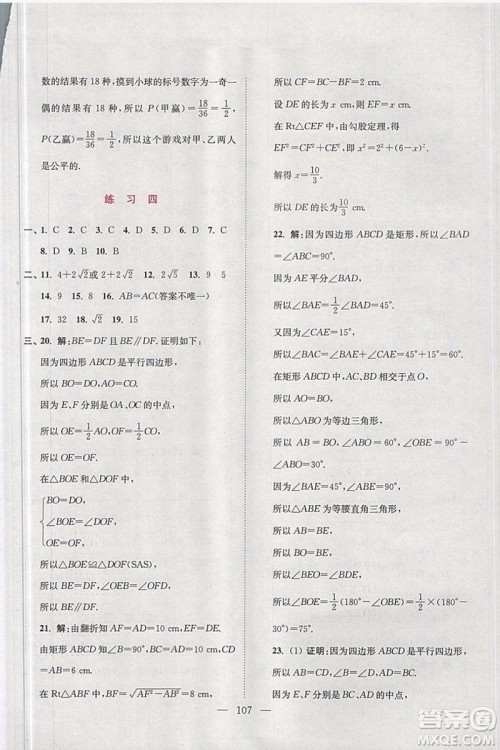 数的结果有 18 种，摸到小球的标号数字为一奇一
偶的结果有 18 种，所以 P(甲赢)=18/36=1/2，
P(乙赢)=18/36=1/2，所以这个游戏对甲、乙两人
是公平的.
练 习 四
一、1. C 2. C 3. C 4. D 5. D 6. C 7. C
8. D 9. D 10. B
二、11. 4+2√2或2+2√2 12. 2√5 13. 9 5
14. 9 15. 8 16. AB=AC(答案不唯一)
17. 32 18. √2 19. 15
三、20. 解：BE=DF且BE∥DF. 证明如下：
因为四边形 ABCD 是平行四边形，
所以 BO=DO，AO=CO.
因为 E、F 分别是 OA、OC 的中点，
所以 OE=1/2 AO，OF=1/2 CO.
所以 OE=OF.
在△BOE 和△DOF 中，
BO=DO，
∠BOE=∠DOF，
OE=OF，
所以△BOE≌△DOF(SAS).
所以 BE=DF，∠BEO=∠DFO.
所以 BE∥DF.
21. 解：由翻折知 AF=AD=10 cm，EF=DE.
由矩形 ABCD 知 BC=AD=10 cm，CD=
AB=6 cm.
在 Rt△ABF 中，BF=√AF²−AB²=8 cm，
所以 CF=BC−BF=2 cm.
设 DE 的长为 x cm，则 EF=x cm.
在 Rt△CEF 中，由勾股定理，得
EF²=CF²+CE²，即 x²=2²+(6−x)².
解得 x=10/3.
所以 DE 的长为 10/3 cm.
22. 解：因为四边形 ABCD 是矩形，所以∠BAD=
∠ABC=90°.
因为 AE 平分∠BAD，所以∠BAE=1/2∠BAD=
45°.
又因为∠CAE=15°，
所以∠BAC=∠BAE+∠CAE=45°+15°=60°.
在矩形 ABCD 中，因为 AC=BD，
所以 AO=BO.
所以△ABO 为等边三角形，
所以 AB=BO，∠ABO=60°，∠OBE=30°.
因为∠BAE=45°，∠ABE=90°，
所以△ABE 为等腰直角三角形，
所以 AB=BE.
所以 BE=BO.
所以∠BOE=1/2(180°−∠OBE)=1/2(180°−
30°)=75°.
23. (1) 证明：因为四边形 ABCD 是平行四边形，
所以 AD∥BC，AD=BC.
107
答案圈
MXQE.COM